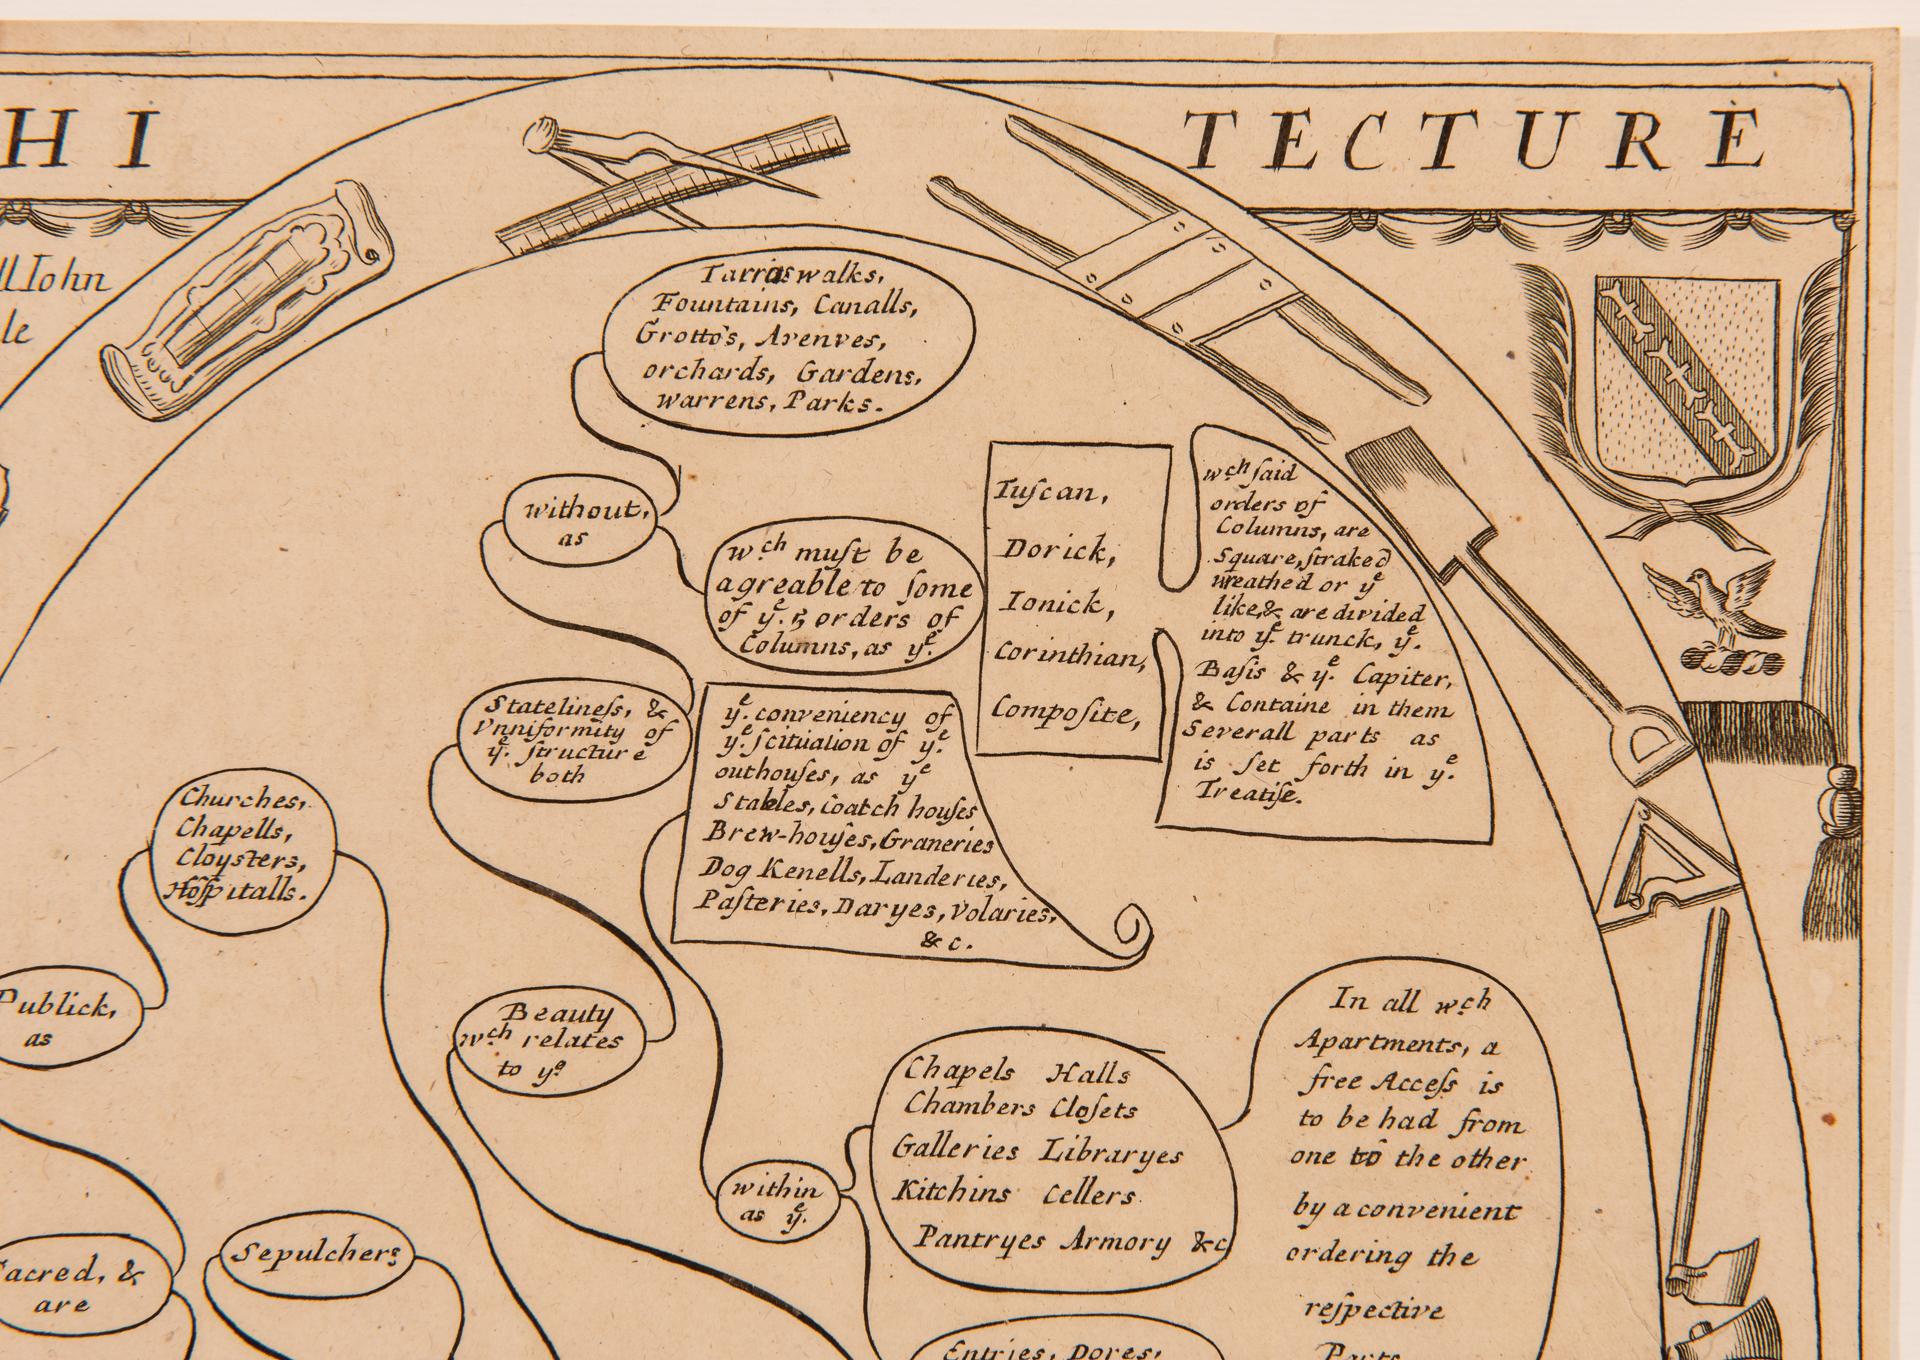 H I
TECTURE
ll Iohn
le
Tarras walks,
Fountains, Canalls,
Grotto's, Avenves,
orchards, Gardens,
warrens, Parks.
without,
as
wch muſt be
agreable to ſome
of ye. 5 orders of
Columns, as ye.
Tuſcan,
Dorick,
Ionick,
Corinthian,
Compoſite,
wch ſaid
orders of
Columns, are
Square, ſtraked
wreathed or ye
like, & are divided
into ye. trunck, ye.
Baſis & ye. Capiter,
& Containe in them
Severall parts as
is ſet forth in ye.
Treatiſe.
Statelineſs, &
Vnniformity of
ye. ſtructure
both
ye. conveniency of
ye. ſcituation of ye.
outhouſes, as ye
Stables, Coatch houſes
Brew-houſes, Graneries
Dog Kenells, Landeries,
Paſteries, Daryes, Volaries,
&c.
Churches,
Chapells,
Cloysters,
Hoſpitalls.
Publick,
as
Beauty
wch relates
to ye
within
as ye.
Chapels Halls
Chambers Cloſets
Galleries Libraryes
Kitchins Cellers
Pantryes Armory &c
In all wch
Apartments, a
free Acceſs is
to be had from
one to the other
by a convenient
ordering the
reſpective
Parts
acred, &
are
Sepulchers
Entries, Dores,